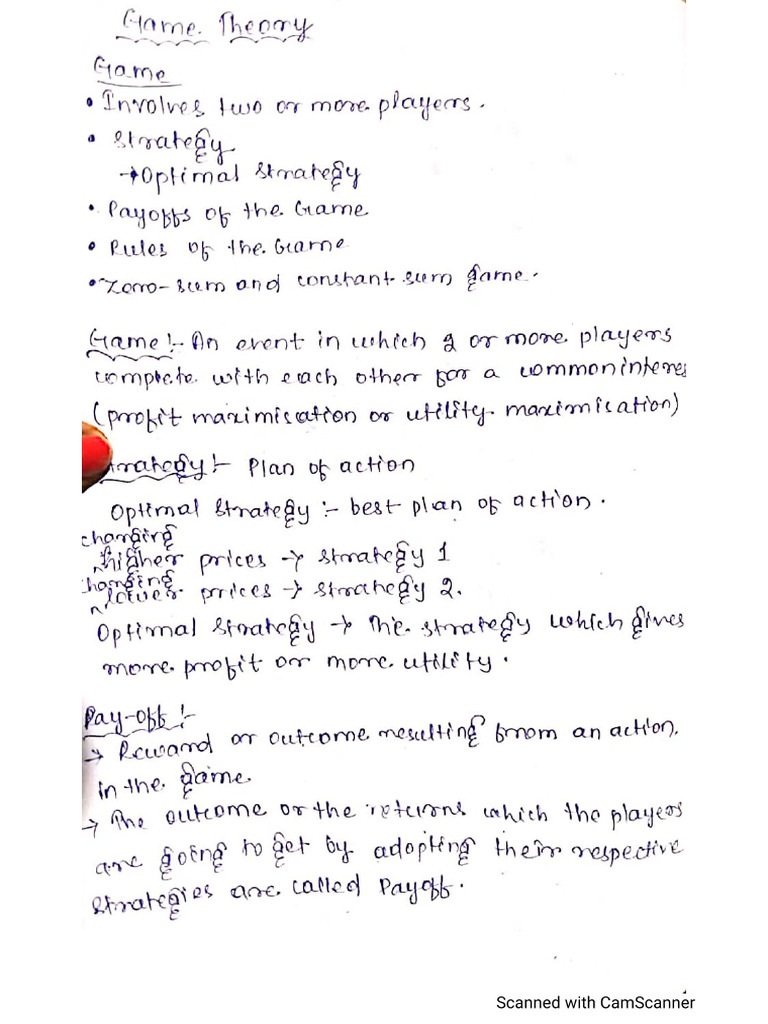 Game Theory
Game
• Involves two or more players.
• Strategy
→ Optimal strategy
• Payoffs of the Game
• Rules of the Game
• Zero-sum and constant sum game.
Game :- An event in which 2 or more players
complete with each other for a common interes
(profit maximisation or utility maximisation)
trategy :- Plan of action
Optimal strategy :- best plan of action.
charging
higher prices → strategy 1
charging
lower prices → strategy 2.
Optimal strategy → The strategy which gives
more profit or more utility.
Pay-off :-
→ Reward or outcome resulting from an action.
in the game.
→ The outcome or the returns which the players
are going to get by adopting their respective
strategies are called Payoff.
Scanned with CamScanner